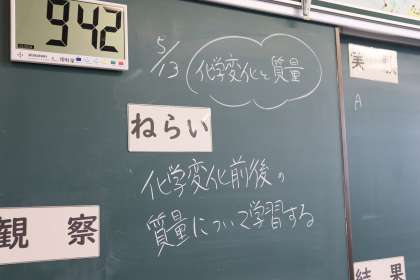 942
5/13
化学変化と質量
ねらい
化学変化前後の
質量について学習する
観察
A
結果